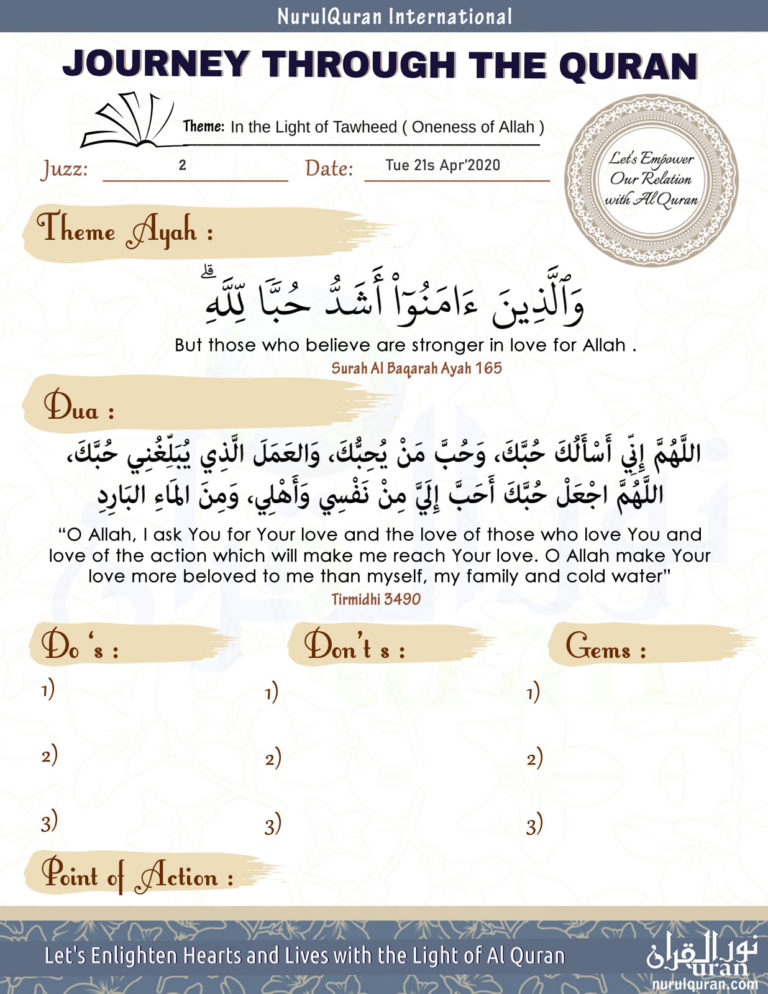 NurulQuran International
JOURNEY THROUGH THE QURAN
Theme: In the Light of Tawheed ( Oneness of Allah )
Juzz: 2 Date: Tue 21s Apr'2020
Let's Empower
Our Relation
with Al Quran
Theme Ayah :
وَٱلَّذِينَ ءَامَنُوٓا۟ أَشَدُّ حُبًّا لِّلَّهِ ۗ
But those who believe are stronger in love for Allah .
Surah Al Baqarah Ayah 165
Dua :
اللَّهُمَّ إِنِّي أَسْأَلُكَ حُبَّكَ، وَحُبَّ مَنْ يُحِبُّكَ، وَالعَمَلَ الَّذِي يُبَلِّغُنِي حُبَّكَ،
اللَّهُمَّ اجْعَلْ حُبَّكَ أَحَبَّ إِلَيَّ مِنْ نَفْسِي وَأَهْلِي، وَمِنَ المَاءِ البَارِدِ
“O Allah, I ask You for Your love and the love of those who love You and
love of the action which will make me reach Your love. O Allah make Your
love more beloved to me than myself, my family and cold water”
Tirmidhi 3490
Do ‘s :
1)
2)
3)
Don't s :
1)
2)
3)
Gems :
1)
2)
3)
Point of Action :
Let's Enlighten Hearts and Lives with the Light of Al Quran
نور القرآن
uran
nurulquran.com